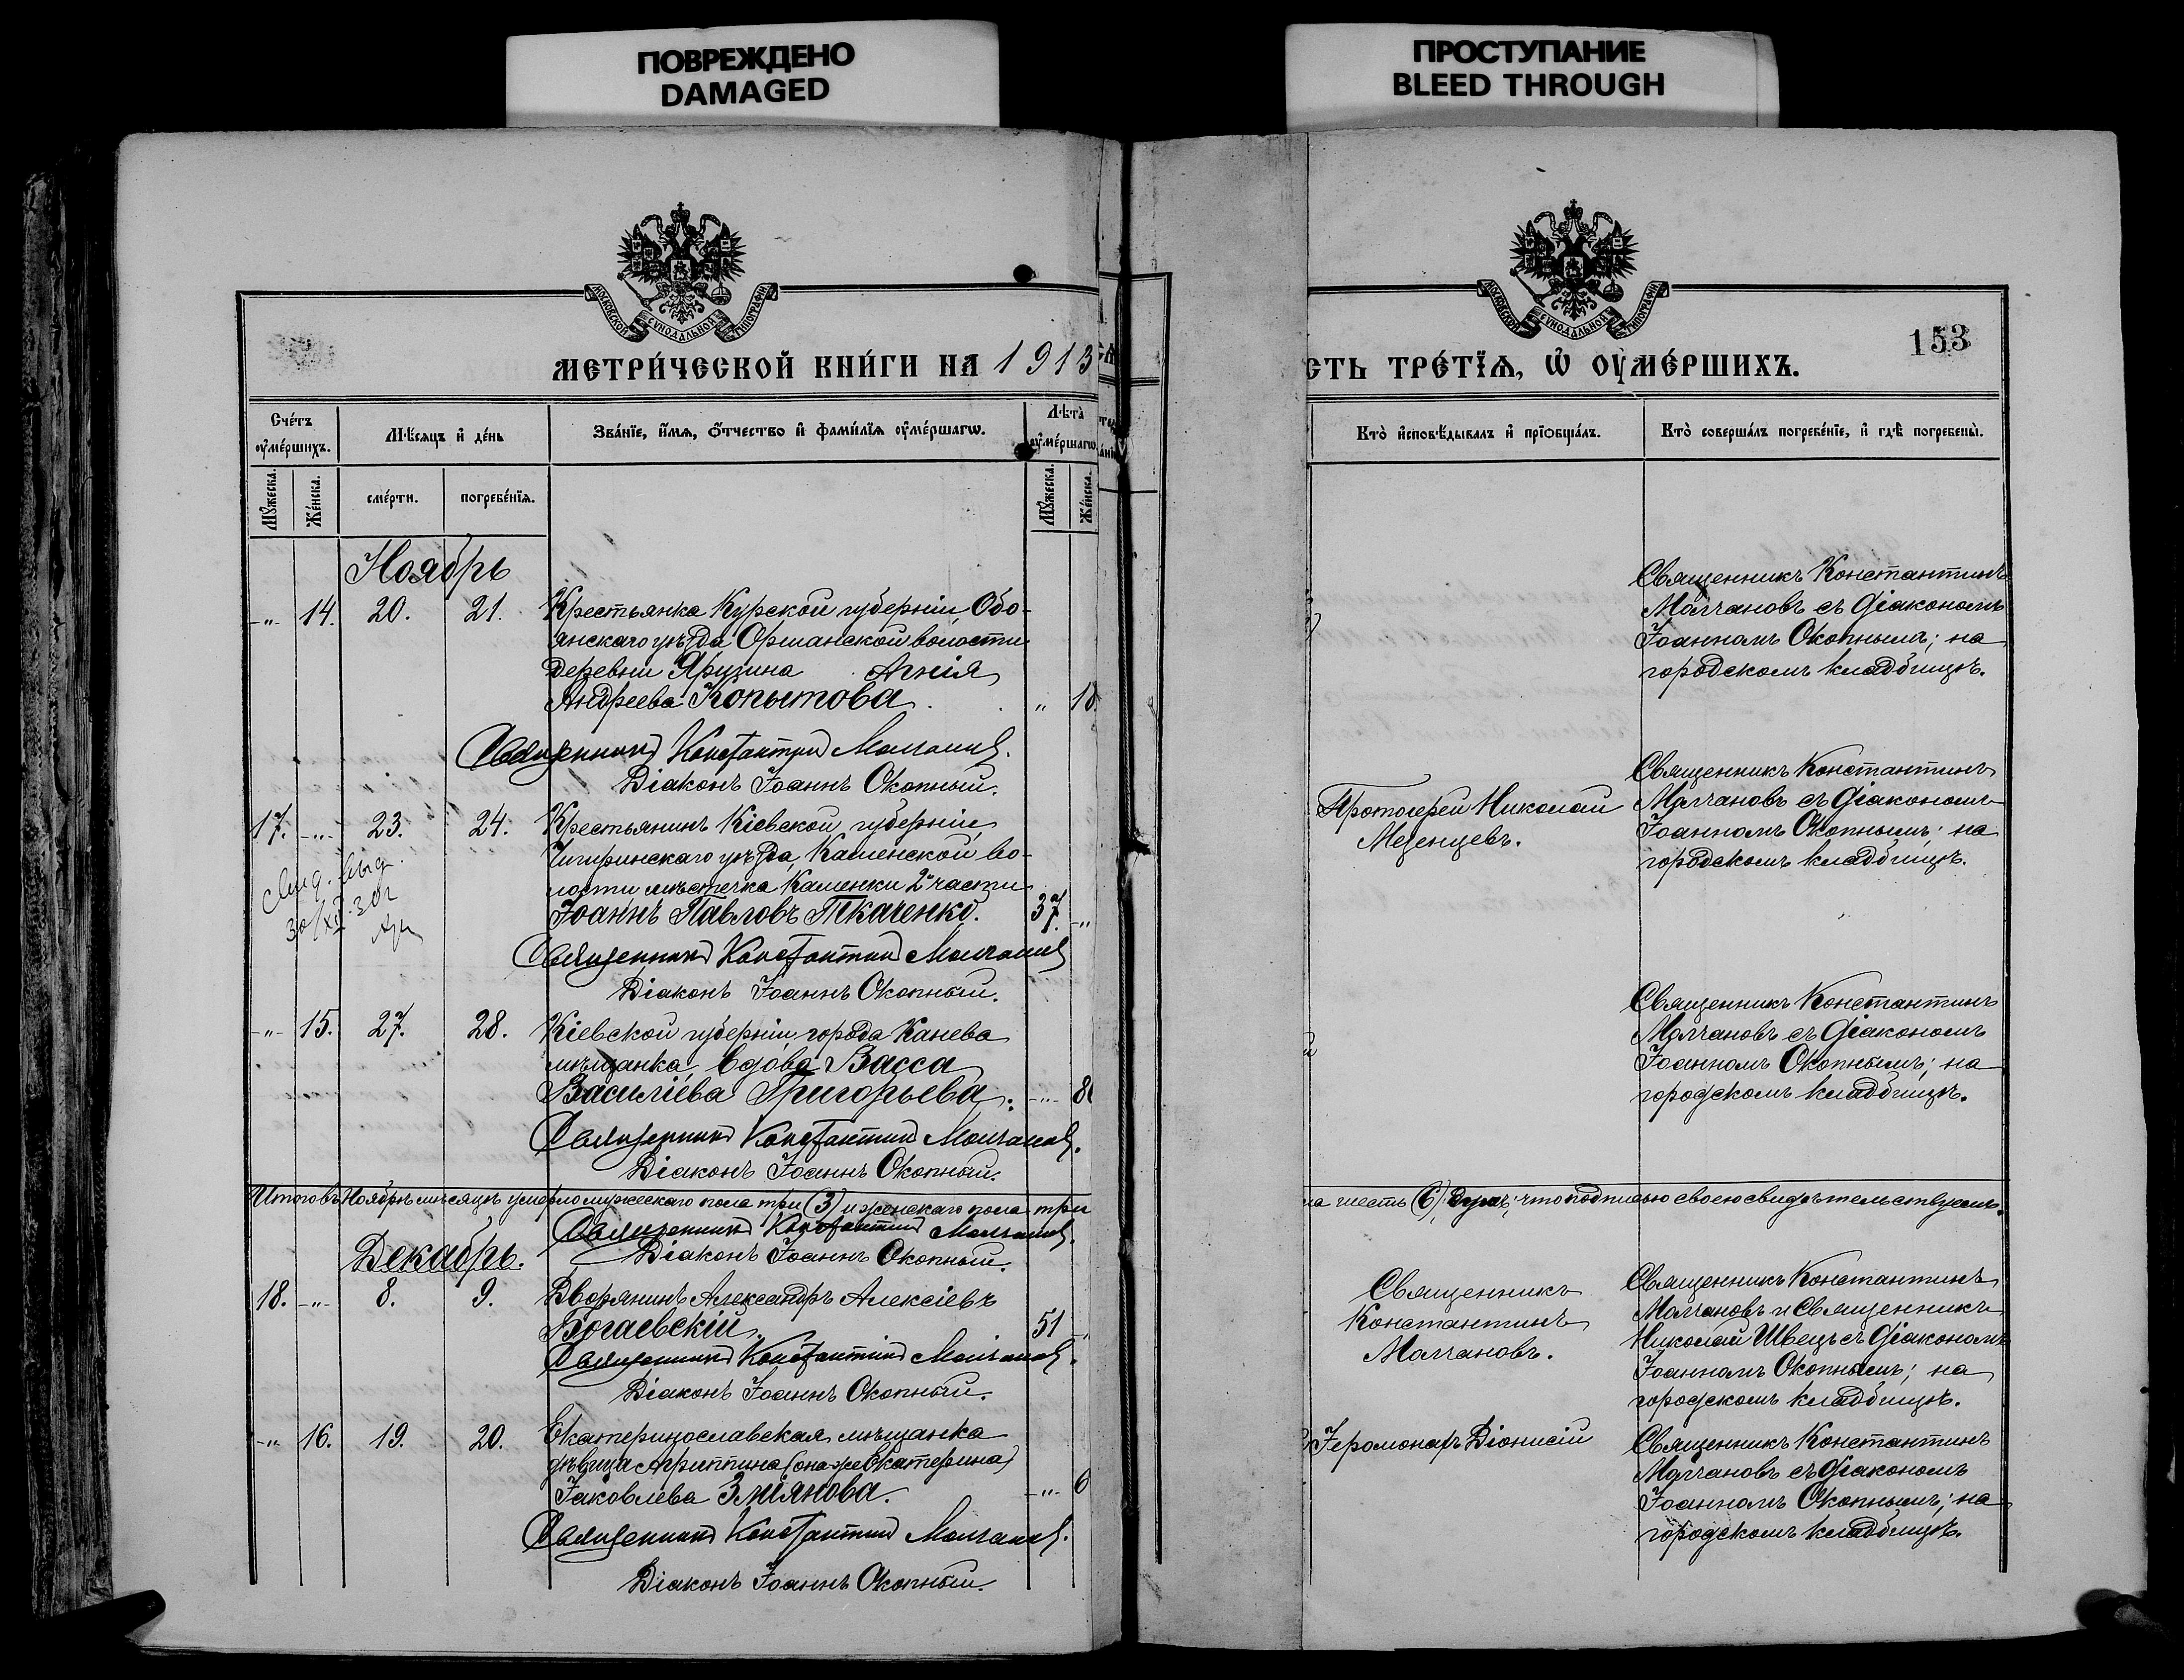 ПОВРЕЖДЕНО
DAMAGED
ПРОСТУПАНИЕ
BLEED THROUGH
МОСКОВСКОЙ СѴНОДАЛЬНОЙ ТИПОГРАФІИ
МЕТРИ́ЧЕСКОЙ КНИ́ГИ НА 1913
Сче́тъ ᲂумéршихъ.
Мѣ́сяцъ и҆ де́нь
Зва́нїе, и҆́мѧ, ѻ҆́тчество и҆ фами́лїѧ ᲂу҆ме́ршагѡ.
Лѣта̀ ᲂу҆ме́ршагѡ
Мꙋ́жеска.
Же́нска.
сме́рти.
погребе́нїѧ.
Мꙋ́жеска.
Же́нска.
Ноябрь
-"- 14. 20. 21. Крестьянка Курской губерніи, Обо-
янскаго уѣзда Орманской волости
деревни Ярыгина Агнія
Андреева Копытова. " 18
Священникъ Константинъ Молчановъ.
Діаконъ Іоаннъ Окопный.
17. -"- 23. 24. Крестьянинъ Кіевской губерніи,
Чигиринскаго уѣзда, Каменской во-
лости мѣстечка Каменки 2й части
Іоаннъ Павловъ Ткаченко. 37. -"
свид. выд.
30/XI
Священникъ Константинъ Молчановъ
Діаконъ Іоаннъ Окопный.
-"- 15. 27. 28. Кіевской губерніи, города Канева
мѣщанка, вдова Васса
Василіева Григорьева. -"- 8
Священникъ Константинъ Молчановъ.
Діаконъ Іоаннъ Окопный.
Итого въ Ноябрѣ мѣсяцѣ умерло мужескаго пола три (3) и женскаго пола три
Священникъ Константинъ Молчановъ.
Діаконъ Іоаннъ Окопный.
Декабрь.
18. -"- 8. 9. Дворянинъ Александръ Алексіевъ
Богаевскій. 51
Священникъ Константинъ Молчановъ.
Діаконъ Іоаннъ Окопный.
-"- 16. 19. 20. Екатеринославская мѣщанка
дѣвица Агриппина (она же Екатерина)
Іаковлева Зміянова. -"- 6
Священникъ Константинъ Молчановъ.
Діаконъ Іоаннъ Окопный.
МОСКОВСКОЙ СѴНОДАЛЬНОЙ ТИПОГРАФІИ
153
СТЬ ТРЕ́ТЇѦ, Ѽ ОУМЕ́РШИХЪ.
Кто̀ и҆сповѣ́дывалъ и҆ прїѡбща́лъ.
Кто̀ соверша́лъ погребе́нїе, и҆ гдѣ̀ погребены̀.
Священникъ Константинъ
Молчановъ съ діакономъ
Іоанномъ Окопнымъ; на
городскомъ кладбищѣ.
Протоіерей Николай
Мезенцевъ.
Священникъ Константинъ
Молчановъ съ діакономъ
Іоанномъ Окопнымъ; на
городскомъ кладбищѣ.
Священникъ Константинъ
Молчановъ съ діакономъ
Іоанномъ Окопнымъ; на
городскомъ кладбищѣ.
на шесть (6) душъ; что подписью своею свидѣтельствуемъ.
Священникъ
Константинъ
Молчановъ.
Священникъ Константинъ
Молчановъ и Священникъ
Николай Швецъ съ діакономъ
Іоанномъ Окопнымъ; на
городскомъ кладбищѣ.
Іеромонахъ Діонисій
Священникъ Константинъ
Молчановъ съ діакономъ
Іоанномъ Окопнымъ; на
городскомъ кладбищѣ.